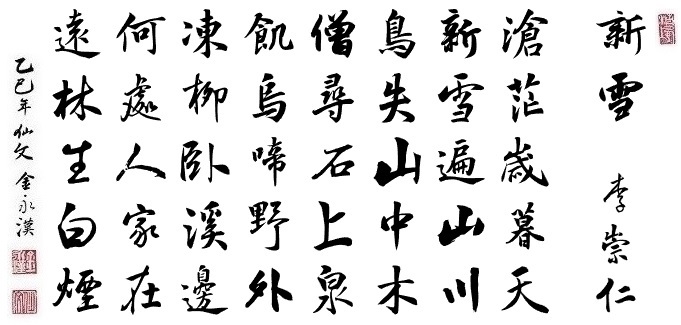 新雪 李崇仁
滄茫歲暮天
新雪遍山川
鳥失山中木
僧尋石上泉
飢烏啼野外
凍柳臥溪邊
何處人家在
遠林生白煙
乙巳年 仙文 金永漢